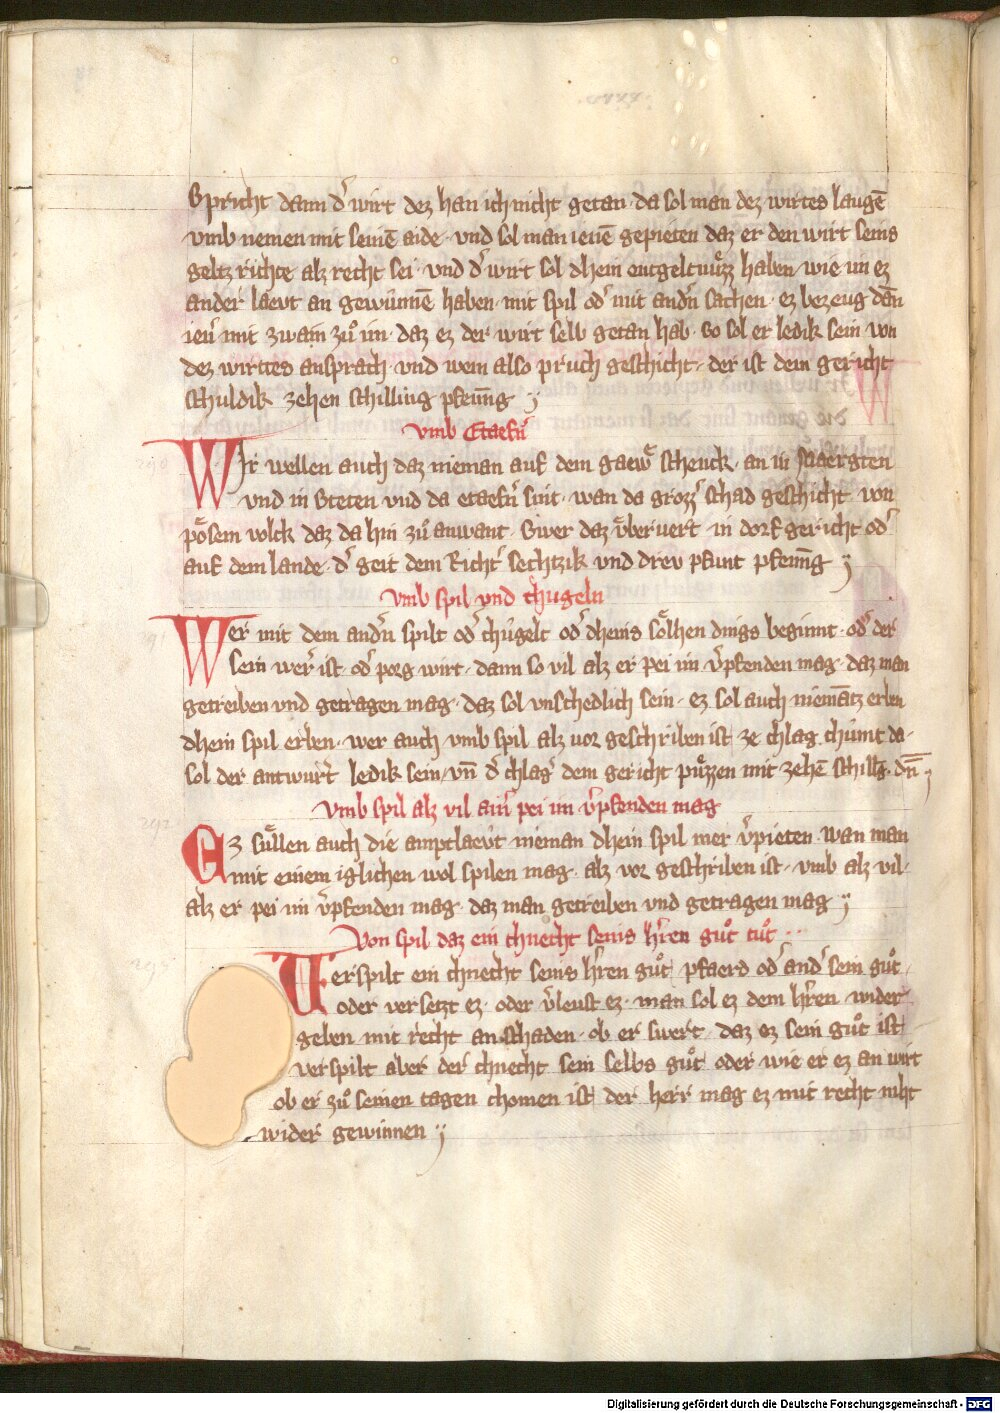 Spricht dann d͛ wirt dez han ich nicht getan · da sol man dez wirtes laugē
vmb nemen mit seinē aide · vnd sol man ienē gepieten daz er den wirt seins
geltz richte alz recht sei · vnd d͛ wirt sol dhein entgeltnuͤzz haben · wie im ez
ander laevt an gewunnē haben · mit spil od͛ mit andn̄ sachen · ez bezeug dān
ien͛ mit zwain zuͦ im · daz ez der wirt selb getan hab · so sol er ledik sein von
dez wirttes ansprach · vnd wem also pruch geschicht · der ist dem gericht
schuldik zehen schilling pfenn̄g
vmb Etaefn͛
Wir wellen auch daz nieman auf dem gaew schenck · an in maergten
vnd in Steten vnd da etaefn͛ sint · wan da grozz͛ schad geschicht von
poͤsem volck daz da hin zuͦ anwant · Swer daz vͤber vert · in dorf gericht od͛
auf dem lande · d͛ geit dem Richt͛ sechtzik vnd drev pfunt pfenn̄g
vmb spil vnd chugeln
Wer mit dem andn̄ spilt od͛ chuͤgelt od͛ dheins soͤlhen dings beginnt · od͛ der
sein wer͛ ist · od͛ porg wirt · dann so vil alz er pei im v͛pfenden mag · daz man
getreiben vnd getragen mag · daz sol vnschedlich sein · ez sol auch niemātz erben
dhein spil erben · wer auch vmb spil alz vor geschriben ist ze chlag chuͤmt da-
sol der antwurt͛ ledik sein · vn̄ d͛ chlag͛ dem gericht puͤzzen mit zehē schillḡ · dn̄
vmb spil alz vil ain͛ pei im v͛pfenden mag
Ez suͤllen auch die amptlaevt nieman dhein spil mer v͛pieten · wan man
mit einem iglichen wol spilen mag · alz vor geschriben ist · vmb alz vil·
alz er pei im v͛pfenden mag · daz man getreiben vnd getragen mag
Von spil daz ein chnecht seins hr͛en guͦt tuͦt
Verspilt ein chnecht seins hr͛en guͦt pfaerd od͛ and͛ sein guͦt
oder versetzt ez · oder v͛leust ez · man sol ez dem hr͛en wider
geben mit recht an schaden · ob er swert · daz ez sein guͦt ist
verspilt aber der chnecht sein selbs guͦt oder wie er ez an wirt
ob er zuͦ seinen tagen chomen ist der herr mag ez mit recht niht
wider gewinnen
Digitalisierung gefördert durch die Deutsche Forschungsgemeinschaft - DFG